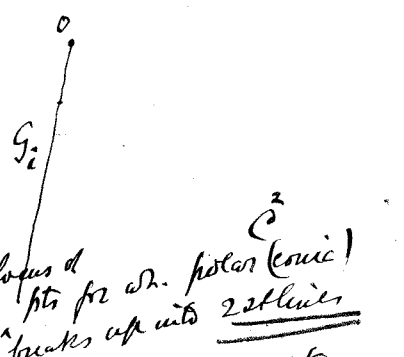 O
G_i
C^2
locus of
pts for wh. polar (conic)
breaks up into 2 st lines